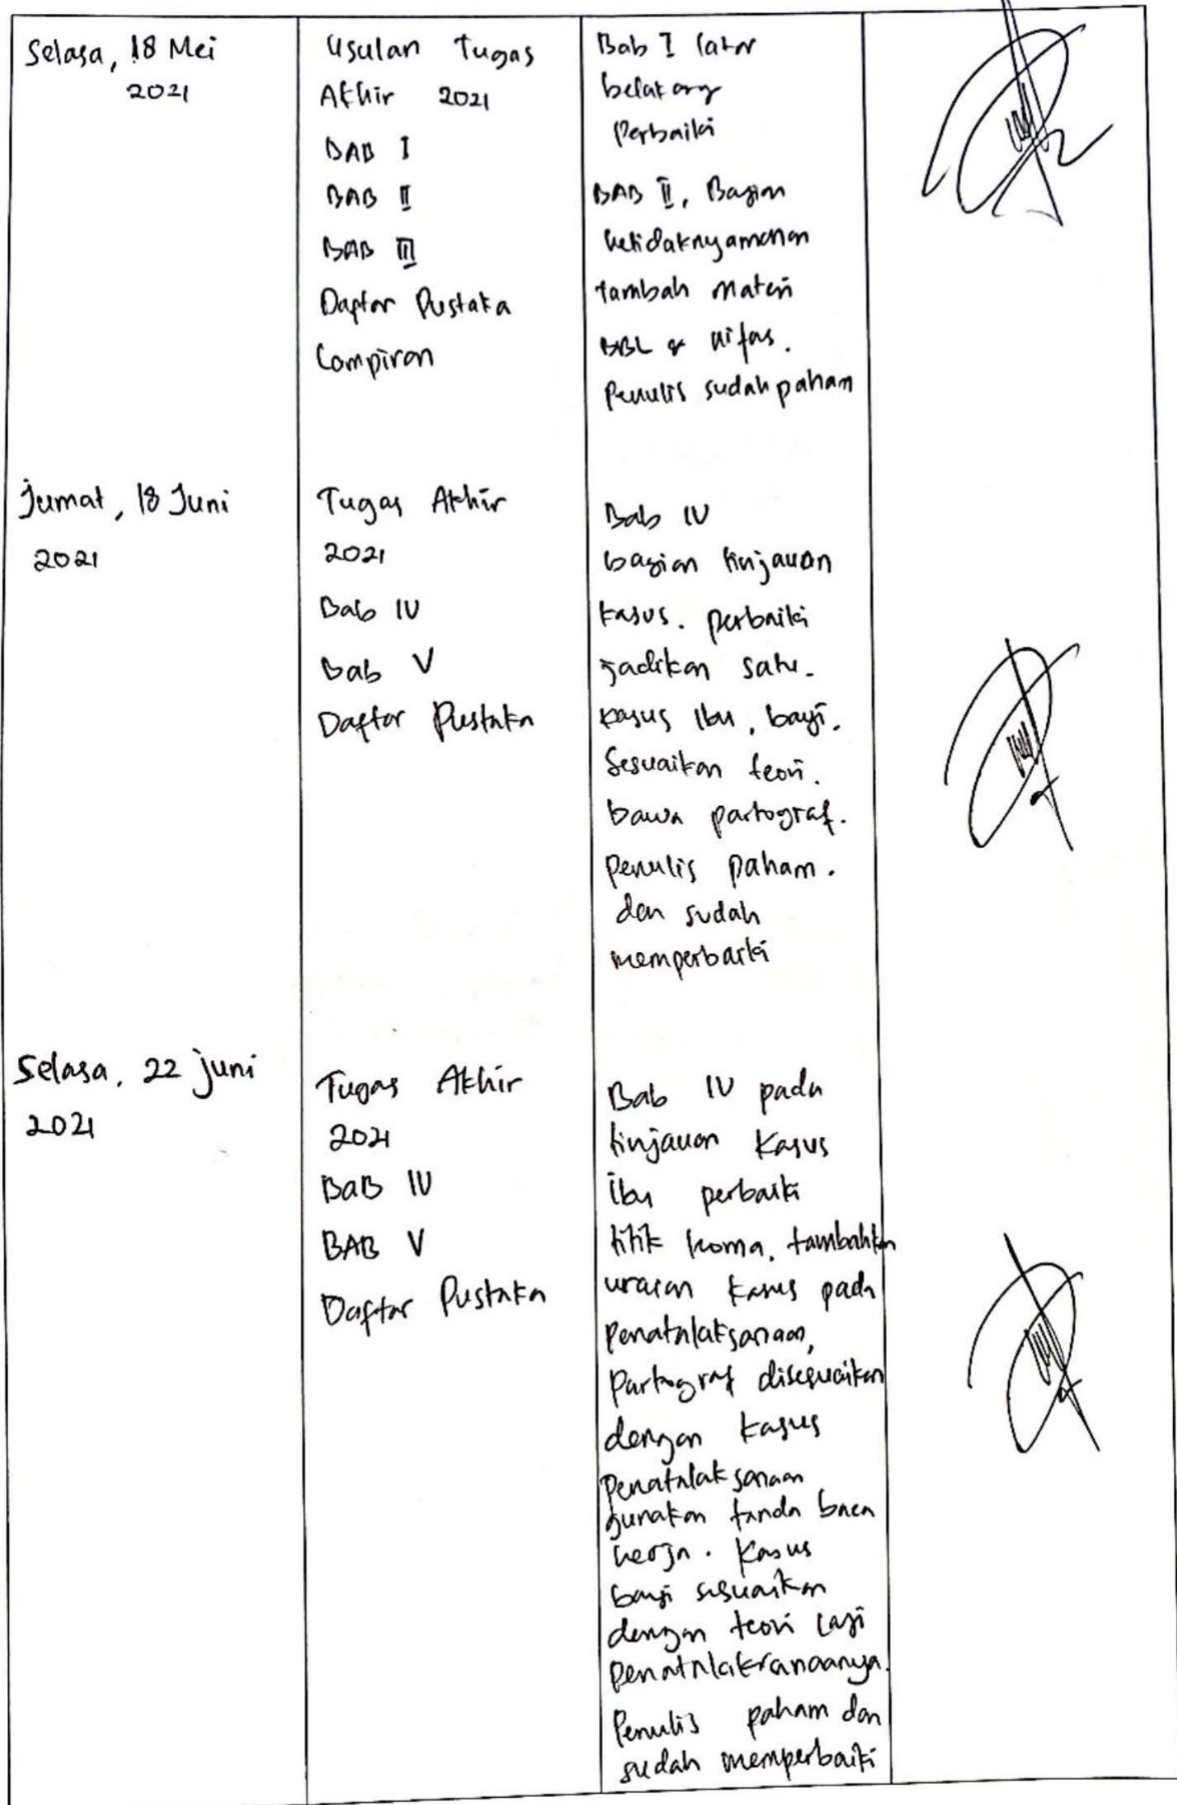 Selasa, 18 Mei
2021
Usulan Tugas
Akhir 2021
BAB I
BAB II
BAB III
Daftar Pustaka
Lampiran
Bab I latar
belakang
Perbaiki
BAB II, Bagian
ketidaknyamanan
tambah materi
BBL & nifas.
Penulis sudah paham
Jumat, 18 Juni
2021
Tugas Akhir
2021
Bab IV
Bab V
Daftar Pustaka
Bab IV
bagian tinjauan
kasus. perbaiki
jadikan satu.
kasus ibu, bayi.
Sesuaikan teori.
bawa partograf.
penulis paham.
dan sudah
memperbaiki
Selasa, 22 juni
2021
Tugas Akhir
2021
BAB IV
BAB V
Daftar Pustaka
Bab IV pada
tinjauan kasus
ibu perbaiki
titik koma. tambahkan
uraian kasus pada
Penatalaksanaan,
Partograf disesuaikan
dengan kasus
Penatalaksanaan
gunakan tanda baca
kerja. Kasus
bayi sesuaikan
dengan teori lagi
penatalaksanaanya.
Penulis paham dan
sudah memperbaiki